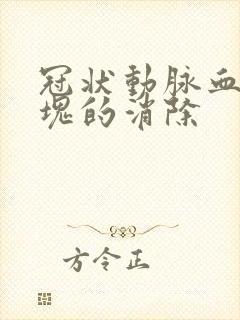 冠状動脉血
塊的消除
方令正